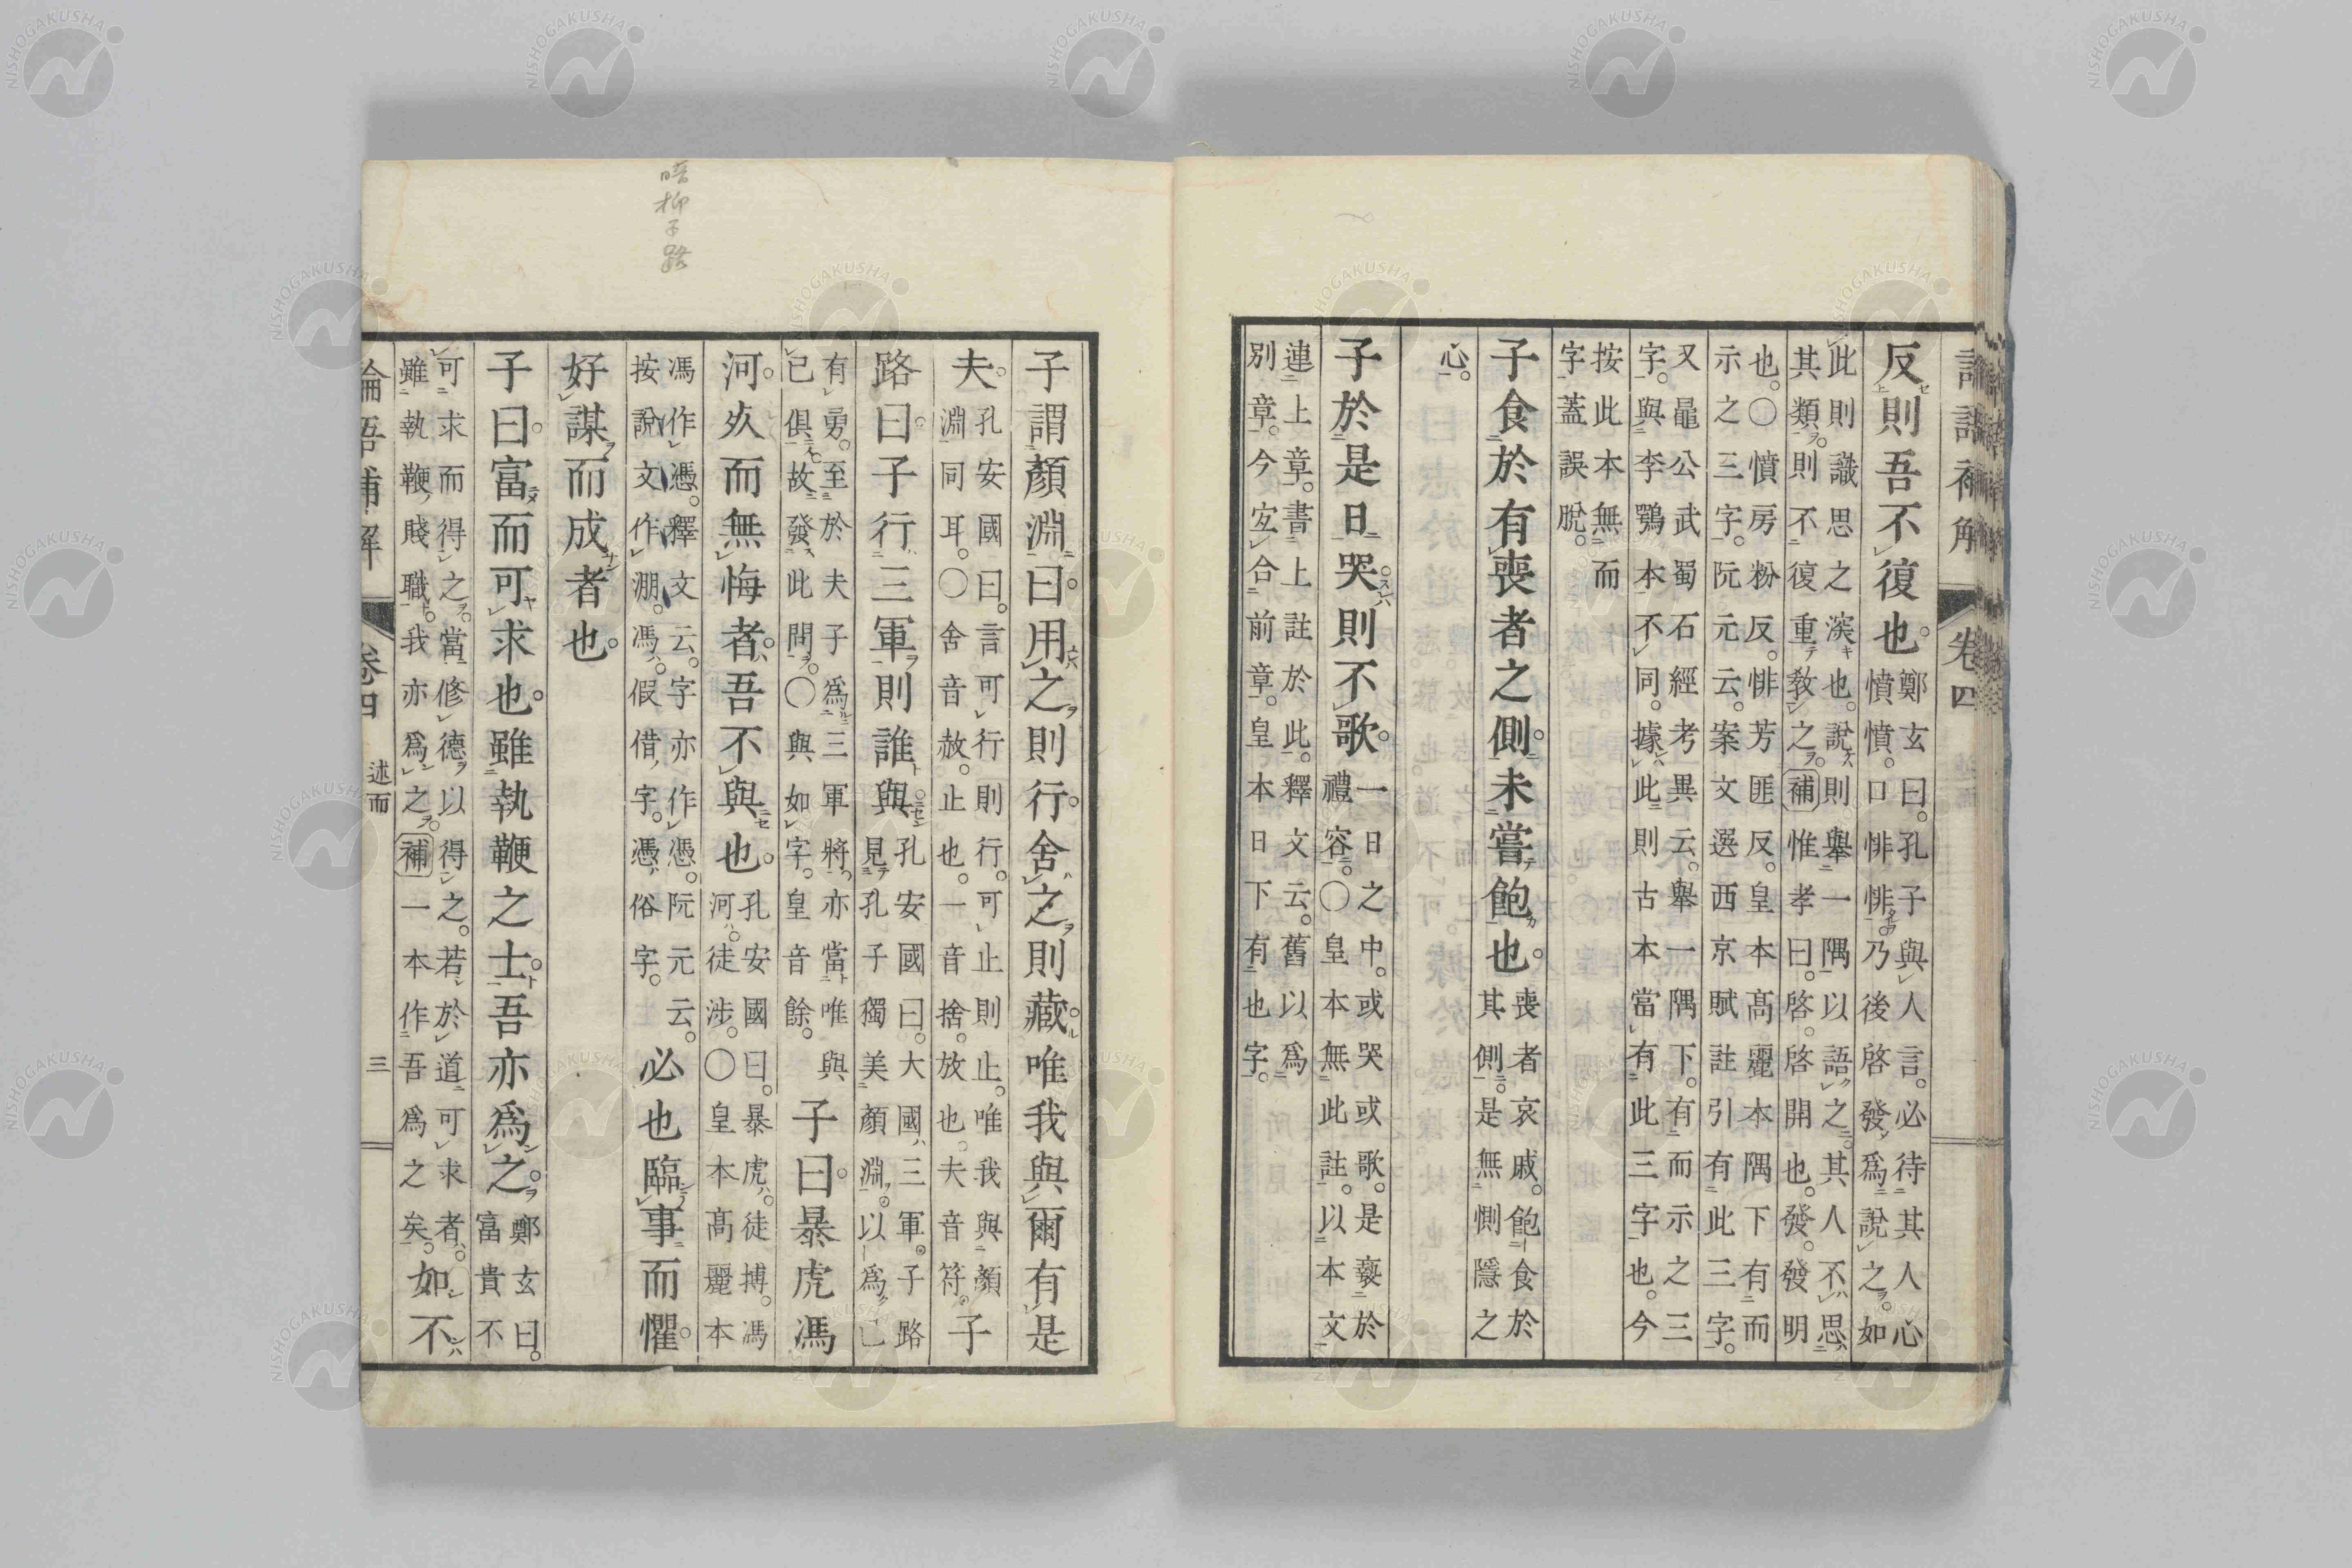 論語補解 卷四
反則吾不復也。鄭玄曰。孔子與人言。必待其人心
憤憤。口悱悱。乃後啓發爲說之。如
此則識思之深也。說則舉一隅以語之。其人不思
其類。則不復重敎之。補惟孝曰。啓。啓開也。發。發明
也。○憤房粉反。悱芳匪反。皇本高麗本隅下有而
示之三字。阮元云。案文選西京賦註引有此三字。
又鼂公武蜀石經考異云。舉一隅下。有而示之三
字。與李鶚本不同。據此則古本當有此三字也。今
按此本無而
字蓋誤脫。
子食於有喪者之側。未嘗飽也。喪者哀戚。飽食於
其側。是無惻隱之
心。
子於是日哭則不歌。一日之中。或哭或歌。是褻於
禮容。○皇本無此註。以本文
連上章。書上註於此。釋文云。舊以爲
別章。今宐合前章。皇本日下有也字。
子謂顏淵曰。用之則行。舍之則藏。唯我與爾有是
夫。孔安國曰。言可行則行。可止則止。唯我與顏
淵同耳。○舍音赦。止也。一音捨。放也。夫音符。子
路曰。子行三軍則誰與。孔安國曰。大國三軍。子路
見孔子獨美顏淵。以爲己
有勇。至於夫子爲三軍將。亦當唯與
已俱。故發此問。○與如字。皇音餘。子曰。暴虎馮
河。夊而無悔者。吾不與也。孔安國曰。暴虎。徒搏。馮
河。徒涉。○皇本高麗本
馮作憑。釋文云。字亦作憑。阮元云。
按說文作淜。馮。假借字。憑。俗字。必也臨事而懼。
好謀而成者也。
子曰。富而可求也。雖執鞭之士。吾亦爲之。鄭玄曰。
富貴不
可求而得之。當修德以得之。若於道可求者。
雖執鞭賤職。我亦爲之。補一本作吾爲之矣。如不
論語補解 卷四 述而 三
子路